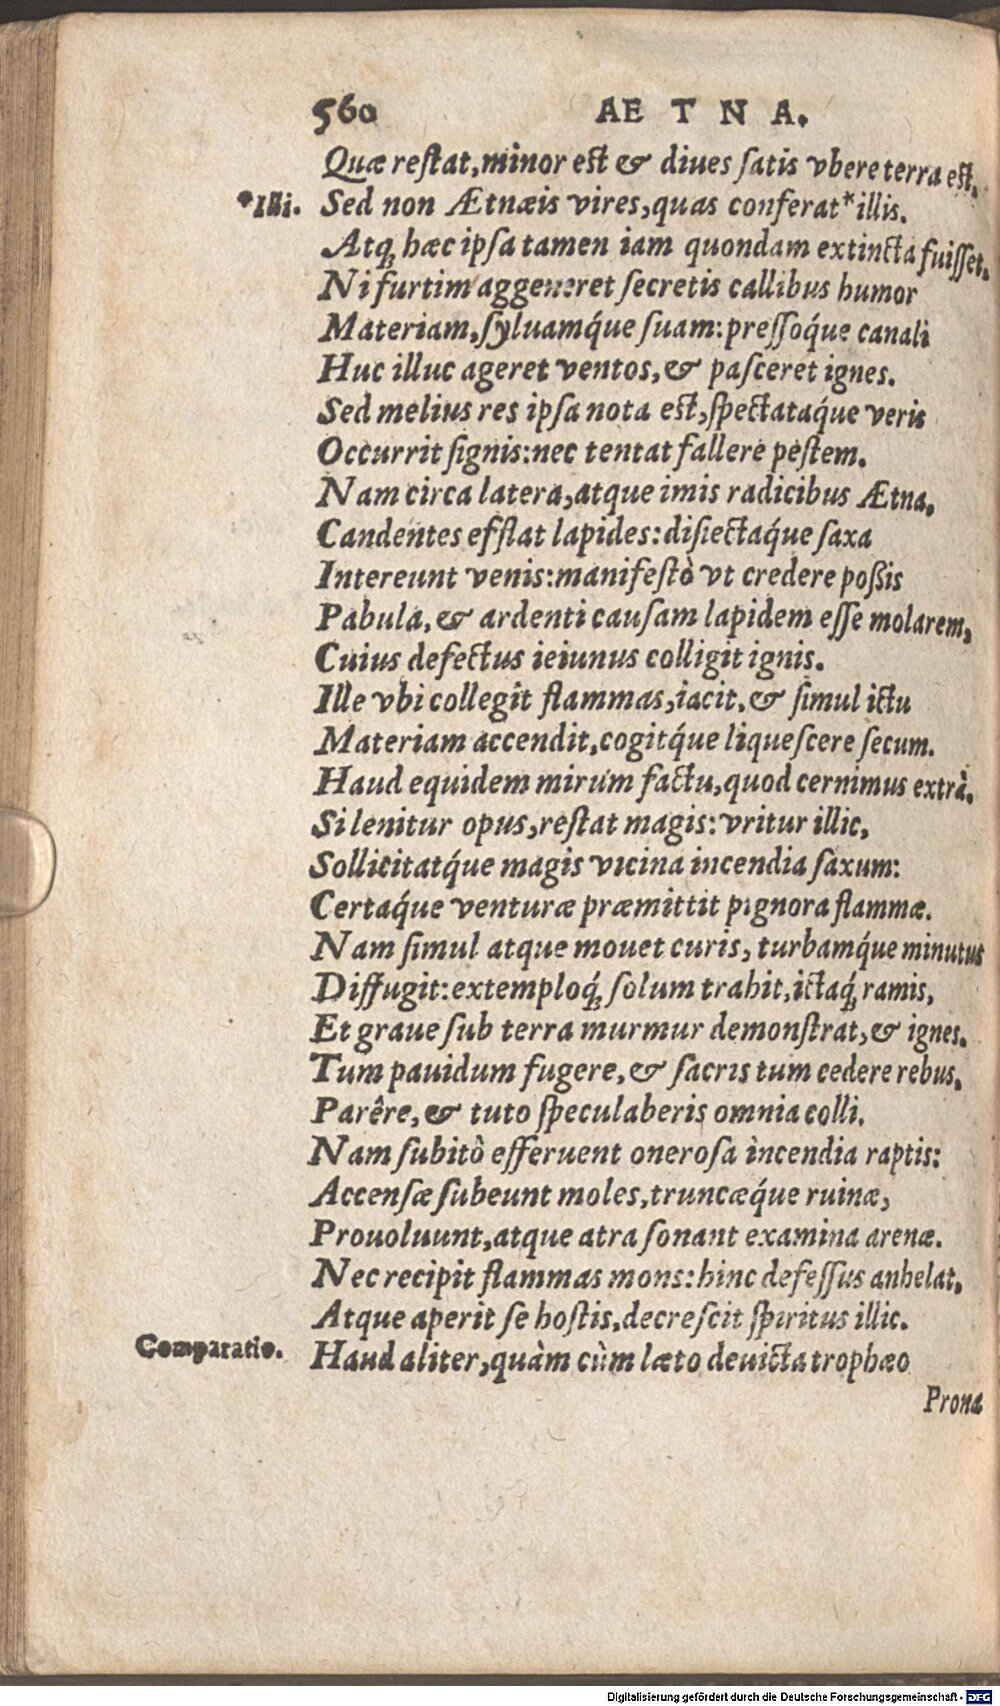 560 AETNA.
Quæ restat, minor est & diues satis vbere terra est.
*Illi. Sed non Ætnæis vires, quas conferat* illis.
Atq; hæc ipsa tamen iam quondam extincta fuisset.
Ni furtim aggeneret secretis callibus humor
Materiam, syluamq́ue suam: pressoq́ue canali
Huc illuc ageret ventos, & pasceret ignes.
Sed melius res ipsa nota est, spectataq́ue veris
Occurrit signis: nec tentat fallere pestem.
Nam circa latera, atque imis radicibus Ætna.
Candentes efflat lapides: disiectaq́ue saxa
Intereunt venis: manifestò vt credere poßis
Pabula, & ardenti causam lapidem esse molarem,
Cuius defectus ieiunus colligit ignis.
Ille vbi collegit flammas, iacit, & simul ictu
Materiam accendit, cogitq́ue liquescere secum.
Haud equidem mirum factu, quod cernimus extrà.
Si lenitur opus, restat magis: vritur illic,
Sollicitatq́ue magis vicina incendia saxum:
Certaq́ue venturæ præmittit pignora flammæ.
Nam simul atque mouet curis, turbamq́ue minutus
Diffugit: extemploq́; solum trahit, ictaq́; ramis,
Et graue sub terra murmur demonstrat, & ignes.
Tum pauidum fugere, & sacris tum cedere rebus,
Parêre, & tuto speculaberis omnia colli.
Nam subitò efferuent onerosa incendia raptis:
Accensæ subeunt moles, truncæq́ue ruinæ,
Prouoluunt, atque atra sonant examina arenæ.
Nec recipit flammas mons: hinc defessus anhelat,
Atque aperit se hostis, decrescit spiritus illic.
Comparatio. Haud aliter, quàm cùm læto deuicta trophæo
Prona
Digitalisierung gefördert durch die Deutsche Forschungsgemeinschaft - DFG